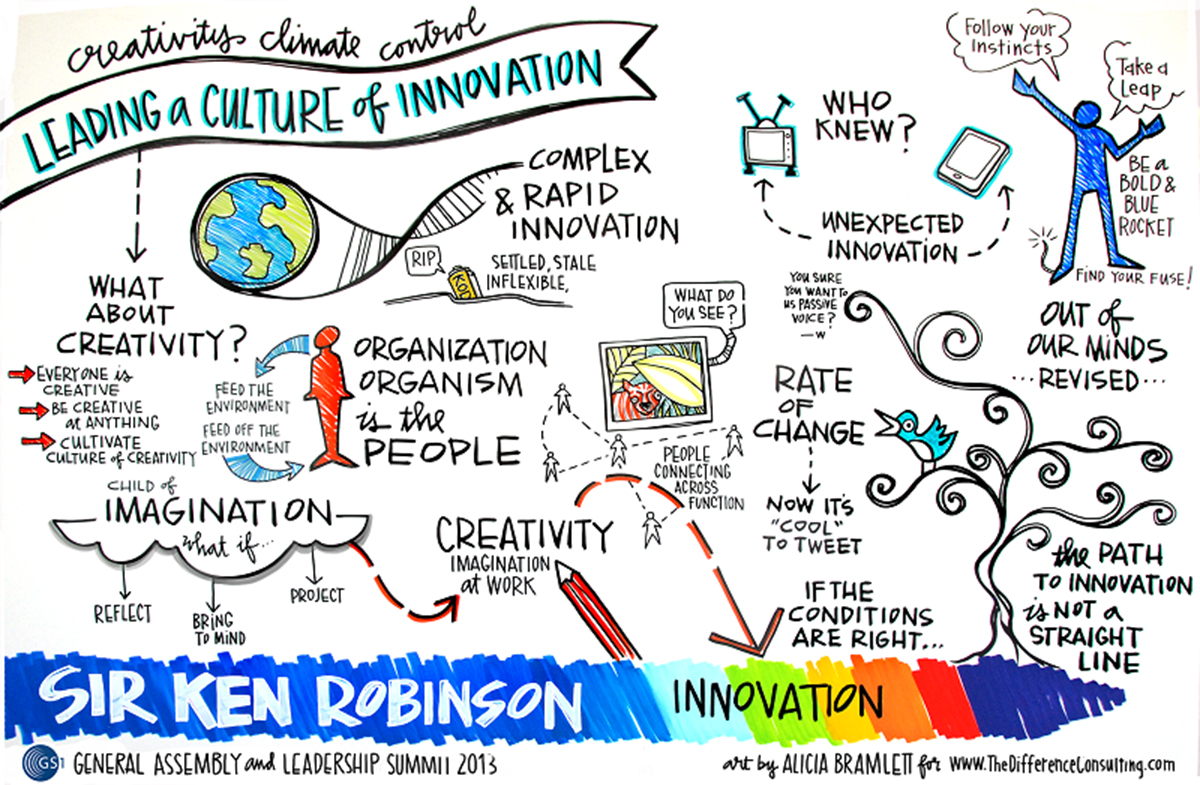 creativity climate control
LEADING a CULTURE of INNOVATION
WHAT
ABOUT
CREATIVITY?
EVERYONE is
CREATIVE
BE CREATIVE
at ANYTHING
CULTIVATE
CULTURE of CREATIVITY
COMPLEX
& RAPID
INNOVATION
RIP
KOD
SETTLED, STALE
INFLEXIBLE,
FEED THE
ENVIRONMENT
FEED OFF THE
ENVIRONMENT
ORGANIZATION
ORGANISM
is the
PEOPLE
CHILD of
IMAGINATION
what if...
REFLECT
BRING
TO MIND
PROJECT
CREATIVITY
IMAGINATION
at WORK
WHAT DO
YOU SEE?
PEOPLE
CONNECTING
ACROSS
FUNCTION
WHO
KNEW?
UNEXPECTED
INNOVATION
YOU SURE
YOU WANT TO
US PASSIVE
VOICE?
—W
RATE
OF
CHANGE
NOW IT'S
"COOL"
TO TWEET
IF THE
CONDITIONS
ARE RIGHT...
Follow your
Instincts
Take a
Leap
BE A
BOLD &
BLUE
ROCKET
FIND YOUR FUSE!
OUT of
OUR MiNDS
...REVISED...
the PATH
TO INNOVATION
is NOT a
STRAIGHT
LINE
SIR KEN ROBINSON
INNOVATION
GS1
GENERAL ASSEMBLY and LEADERSHIP SUMMIT 2013
art by ALICIA BRAMLETT for www.TheDifferenceConsulting.com